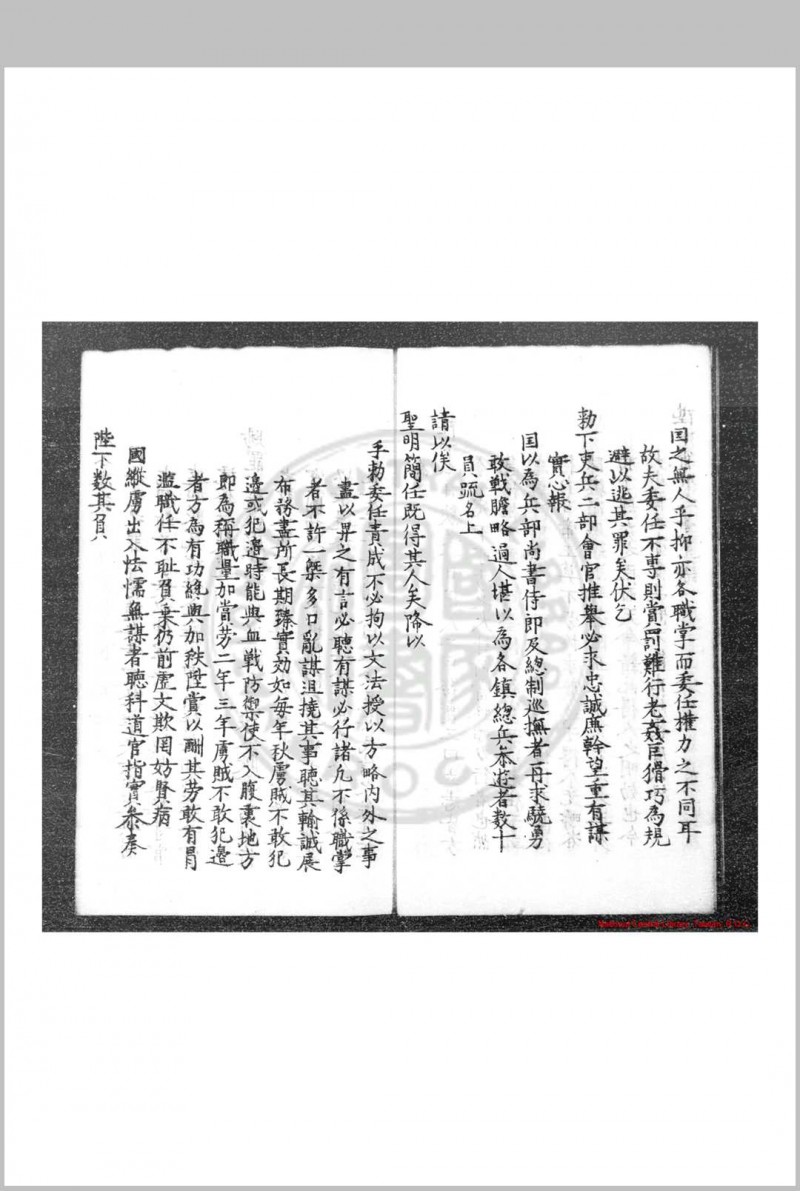 囯之無人乎抑亦各職掌而委任權力之不同耳
故夫委任不專則賞罰難行老姦巨猾巧為規
避以逃其罪矣伏乞
勅下吏兵二部會官推舉必求忠誠廉幹望重有謀
實心報
囯以為兵部尚書侍郎及總制巡撫者再求驍勇
敢戰膽略過人堪以為各鎮總兵叅遊者数十
員疏名上
請以俟
聖明簡任既得其人矣降以
手勅委任責成不必拘以文法授以方略内外之事
盡以畀之有言必聽有謀必行諸凢不係職掌
者不許一槩多口亂謀沮撓其事聽其輸誠展
布務盡所長期臻實効如每年秋虜賊不敢犯
邊或犯邉時能與血戰防禦使不入腹裏地方
即為稱職量加賞劳二年三年虜賊不敢犯邊
者方為有功緫與加秩陞賞以酬其劳敢有冐
濫職任不耻負乗仍前虗文欺罔妨賢病
國縱虜出入怯懦無謀者聽科道官指實叅奏
陛下数其負